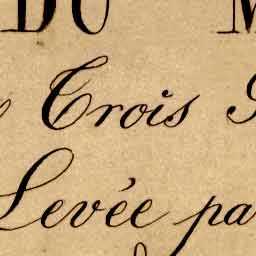 DU M
Trois
Levée pa